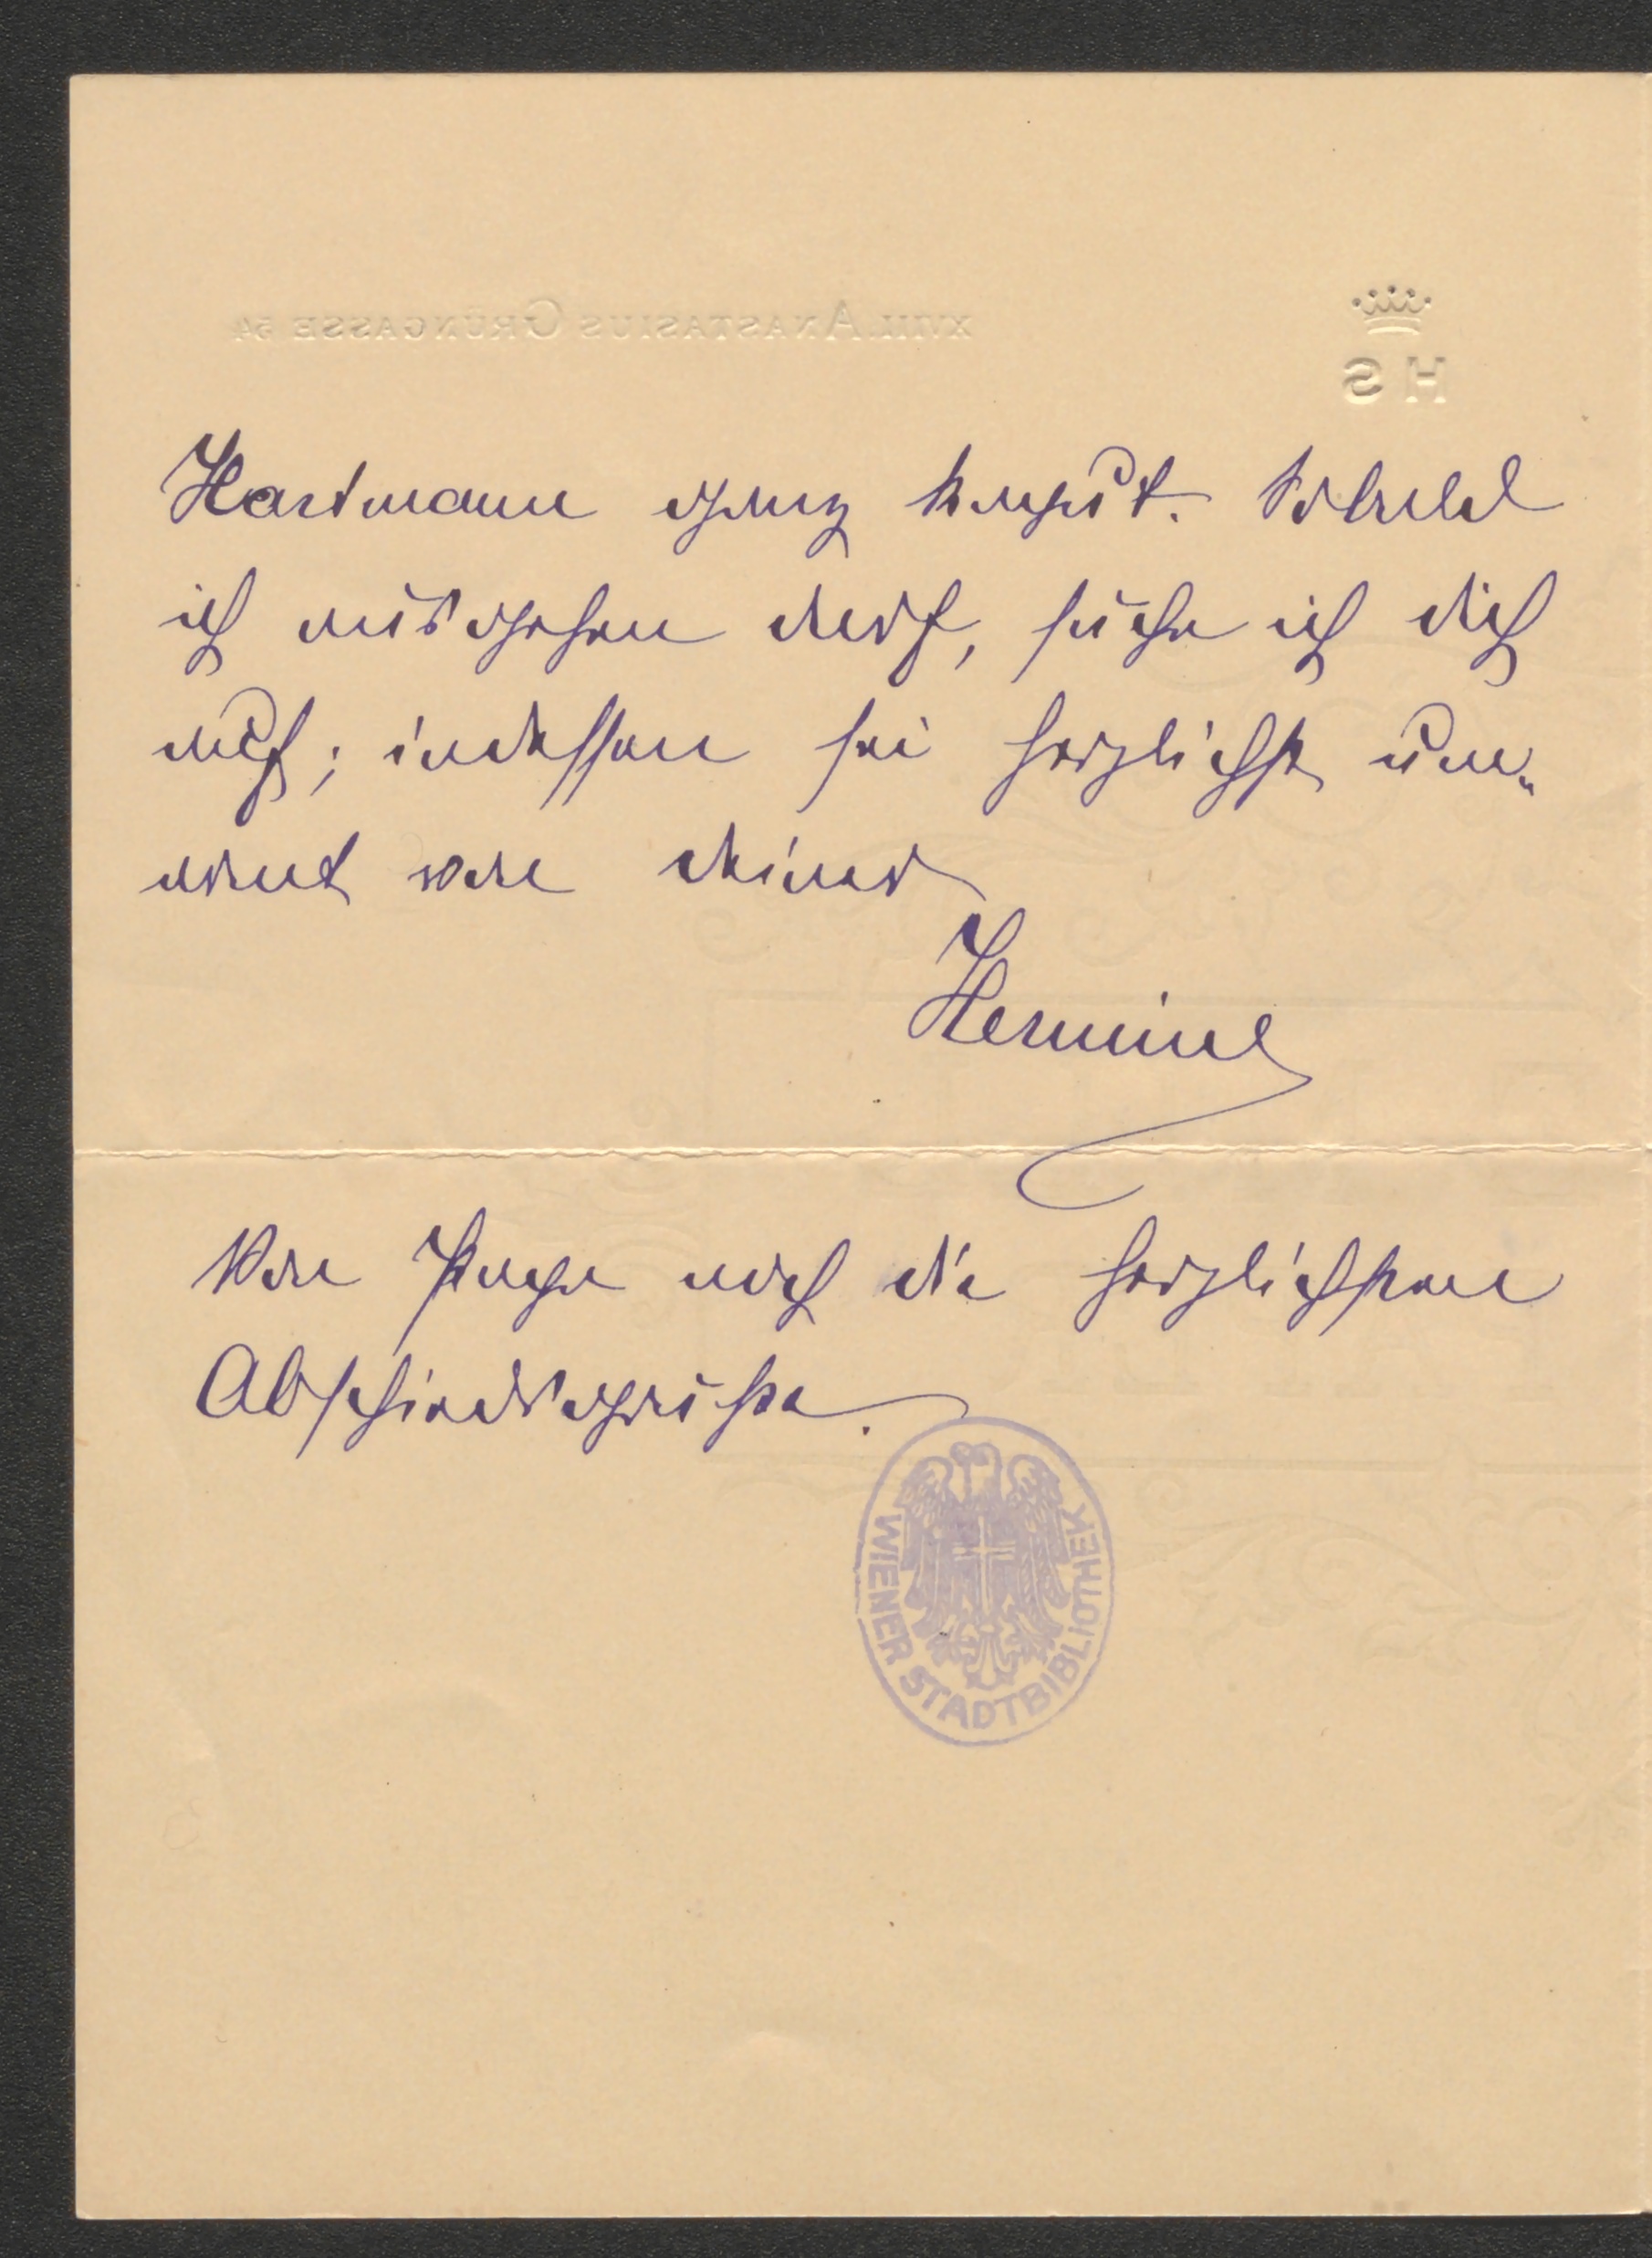 XVIII. ANASTASIUS GRÜNGASSE 54
H S
Hartmann ganz kaput. Sobald
ich ausgehen darf, suche ich dich
auf; indessen sei herzlichst um„
armt von deiner
Hermine
Von noch die herzlichsten
Abschiedsgrüße.
WIENER STADTBIBLIOTHEK